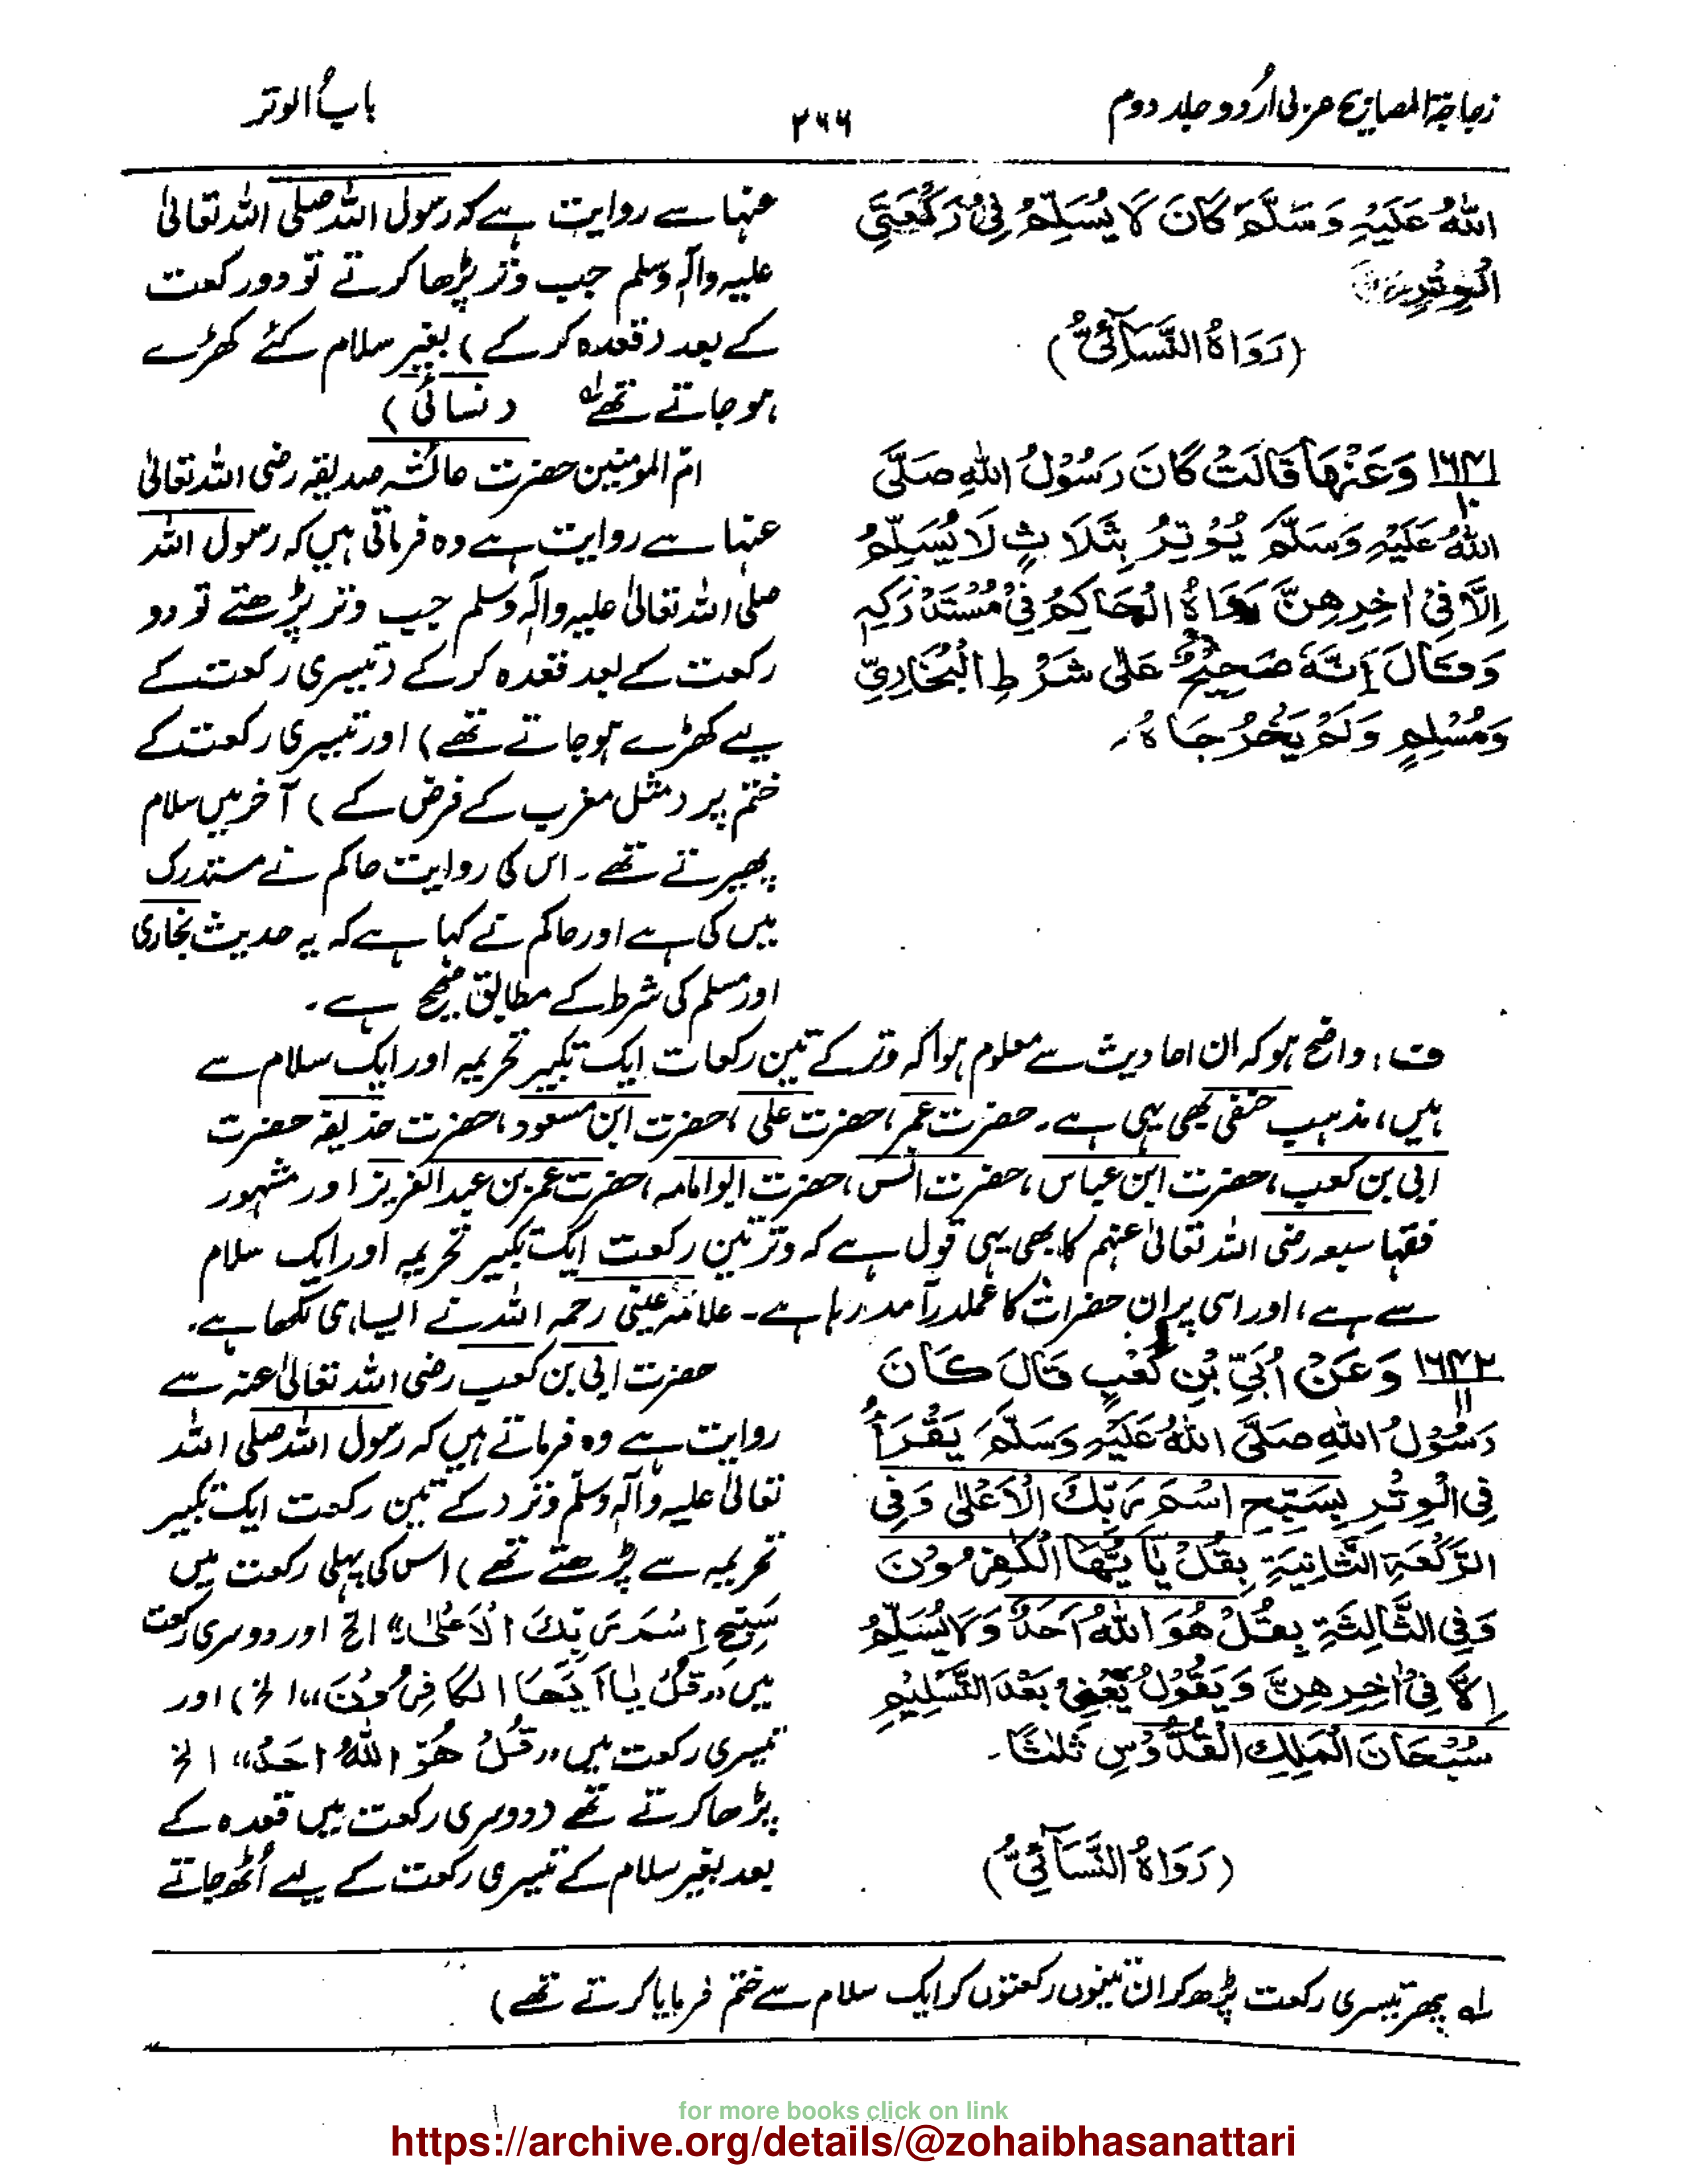 زجاجۃ المصابیح عربی اُردو جلد دوم
۲۶۶
بابُ الوتر
اللّٰهُ عَلَيْهِ وَسَلَّمَ كَانَ لَا يُسَلِّمُ فِيْ رَكْعَتَيِ
الْوِتْرِ
(رَوَاهُ النَّسَآئِيُّ)
عنہا سے روایت ہے کہ رسول اللہ صلی اللہ تعالیٰ
علیہ وآلہٖ وسلم جب وتر پڑھا کرتے تو دو رکعت
کے بعد (قعدہ کرکے) بغیر سلام کئے کھڑے
ہو جاتے تھے لہ (نسائی)
۱۶۴۱/۱۰ وَعَنْهَا قَالَتْ كَانَ رَسُوْلُ اللّٰهِ صَلَّى
اللّٰهُ عَلَيْهِ وَسَلَّمَ يُوْتِرُ بِثَلَاثٍ لَا يُسَلِّمُ
اِلَّا فِيْ اٰخِرِهِنَّ رَوَاهُ الْحَاكِمُ فِيْ مُسْتَدْرَكِهٖ
وَقَالَ اِنَّهٗ صَحِيْحٌ عَلٰى شَرْطِ الْبُخَارِيِّ
وَمُسْلِمٍ وَلَمْ يَخْرُجَاهُ۔
امّ المومنین حضرت عائشہ صدیقہ رضی اللہ تعالیٰ
عنہا سے روایت ہے وہ فرماتی ہیں کہ رسول اللہ
صلی اللہ تعالیٰ علیہ وآلہٖ وسلم جب وتر پڑھتے تو دو
رکعت کے بعد قعدہ کرکے (تیسری رکعت کے
لیے کھڑے ہو جاتے تھے) اور تیسری رکعت کے
ختم پر (مثل مغرب کے فرض کے) آخر میں سلام
پھیرتے تھے۔ اس کی روایت حاکم نے مستدرک
میں کی ہے اور حاکم نے کہا ہے کہ یہ حدیث بخاری
اور مسلم کی شرط کے مطابق صحیح ہے۔
ف: واضح ہو کہ ان احادیث سے معلوم ہوا کہ وتر کے تین رکعات ایک تکبیر تحریمہ اور ایک سلام سے
ہیں، مذہب حنفی بھی یہی ہے۔ حضرت عمر، حضرت علی، حضرت ابن مسعود، حضرت حذیفہ حضرت
ابی بن کعب، حضرت ابن عباس، حضرت انس، حضرت ابوامامہ، حضرت عمر بن عبدالعزیز اور مشہور
فقہا سبعہ رضی اللہ تعالیٰ عنہم کا بھی یہی قول ہے کہ وتر تین رکعت ایک تکبیر تحریمہ اور ایک سلام
سے ہے، اور اسی پر ان حضرات کا عملدرآمد رہا ہے۔ علامہ عینی رحمہ اللہ نے ایسا ہی لکھا ہے۔
۱۶۴۲/۱۱ وَعَنْ اُبَيِّ بْنِ كَعْبٍ قَالَ كَانَ
رَسُوْلُ اللّٰهِ صَلَّى اللّٰهُ عَلَيْهِ وَسَلَّمَ يَقْرَأُ
فِي الْوِتْرِ بِسَبِّحِ اسْمَ رَبِّكَ الْاَعْلٰى وَفِي
الرَّكْعَةِ الثَّانِيَةِ بِقُلْ يٰاَيُّهَا الْكٰفِرُوْنَ
وَفِي الثَّالِثَةِ بِقُلْ هُوَ اللّٰهُ اَحَدٌ وَلَا يُسَلِّمُ
اِلَّا فِيْ اٰخِرِهِنَّ وَيَقُوْلُ يَعْنِيْ بَعْدَ التَّسْلِيْمِ
سُبْحَانَ الْمَلِكِ الْقُدُّوْسِ ثَلٰثًا۔
(رَوَاهُ النَّسَآئِيُّ)
حضرت ابی بن کعب رضی اللہ تعالیٰ عنہ سے
روایت ہے وہ فرماتے ہیں کہ رسول اللہ صلی اللہ
تعالیٰ علیہ وآلہٖ وسلم وتر (کے تین رکعت ایک تکبیر
تحریمہ سے پڑھتے تھے) اس کی پہلی رکعت میں
سَبِّحِ اسْمَ رَبِّكَ الْاَعْلٰى" الخ اور دوسری رکعت
میں "قُلْ يٰاَيُّهَا الْكَافِرُوْنَ" الخ) اور
تیسری رکعت میں "قُلْ هُوَ اللّٰهُ اَحَدٌ" الخ
پڑھا کرتے تھے (دوسری رکعت میں قعدہ کے
بعد بغیر سلام کے تیسری رکعت کے لیے اُٹھ جاتے
لہ پھر تیسری رکعت پڑھ کر ان تینوں رکعتوں کو ایک سلام سے ختم فرمایا کرتے تھے)
for more books click on link
https://archive.org/details/@zohaibhasanattari